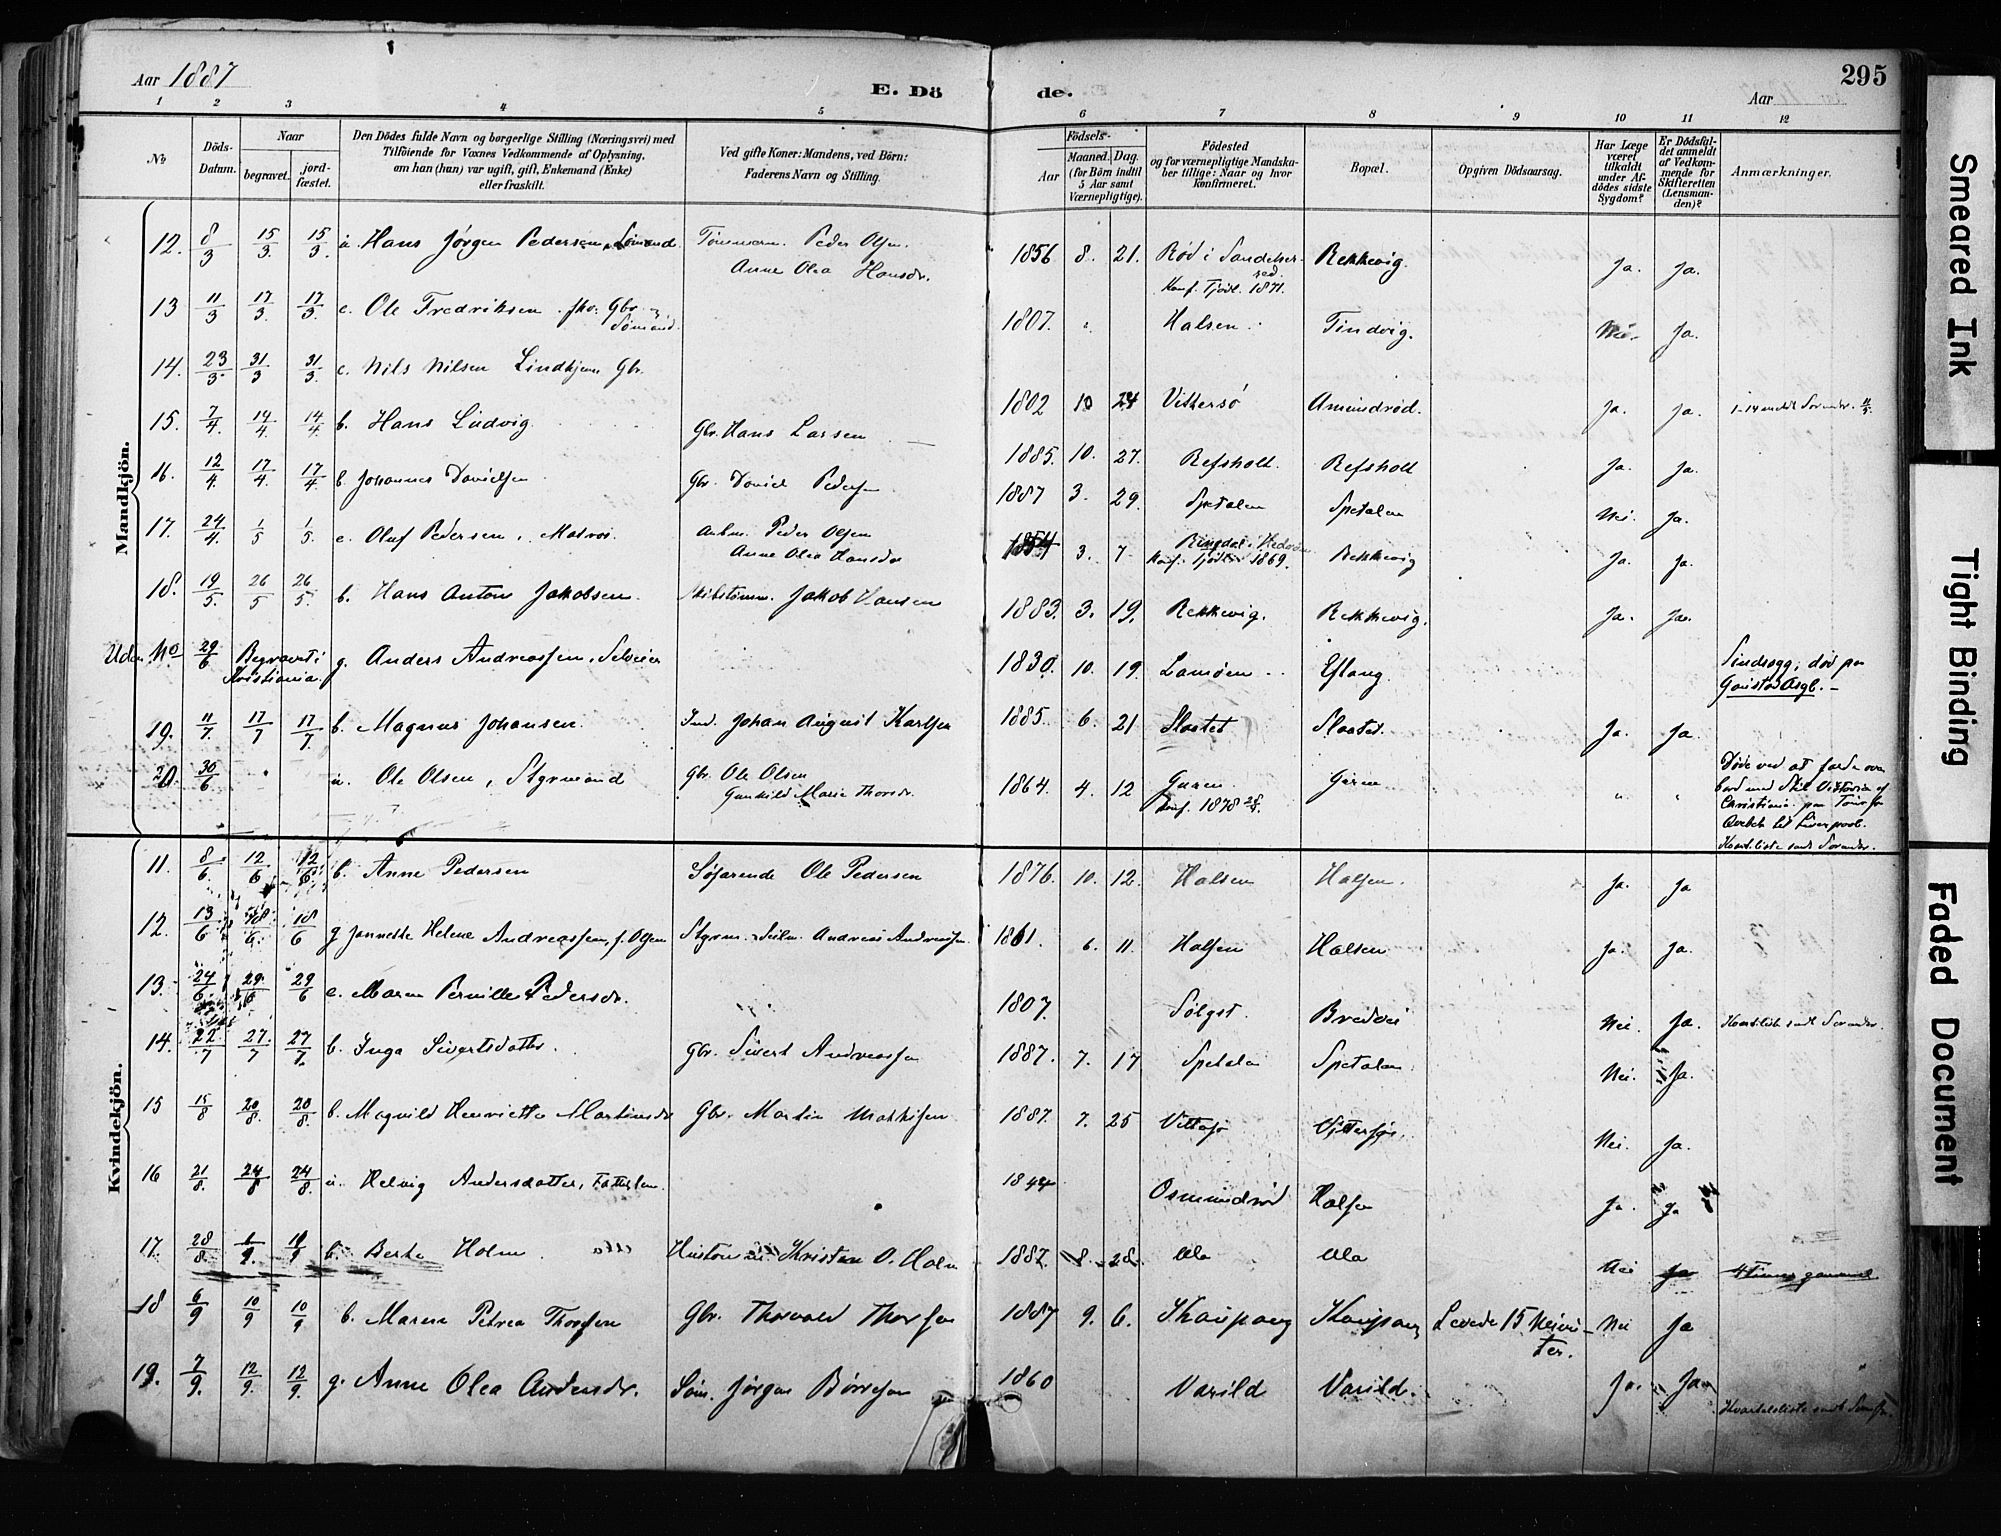 Aar 1887
E. Dö
de.
Aar
295
1 2 3 4 5 6 7 8 9 10 11 12
No
Döds-Datum.
Naar
begravet.
jord-fæstet.
Den Dödes fulde Navn og borgerlige Stilling (Næringsvei) med
Tilföiende for Voxnes Vedkommende af Oplysning,
om han (hun) var ugift, gift, Enkemand (Enke)
eller fraskilt.
Ved gifte Koner: Mandens, ved Börn:
Faderens Navn og Stilling.
Födsels-
Aar
Maaned. Dag.
(for Börn indtil
5 Aar samt
Værnepligtige).
Födested
og for værnepligtige Mandska-
ber tillige: Naar og hvor
konfirmeret.
Bopæl.
Opgiven Dödsaarsag.
Har Læge
været
tilkaldt
under Af-
dödes sidste
Sygdom?
Er Dödsfal-
det anmeldt
af Vedkom-
mende for
Skifteretten
(Lensman-
den)?
Anmærkninger.
Mandkjön.
12. 8/3 15/3. 15/3. u. Hans Jørgen Pedersen, Sömand. Tömmerm. Peder Olsen. Anne Olea Hansdr. 1856 8. 21. Rød i Sandeherred. Konf. Tjödl. 1871. Rekkevig. Ja. Ja.
13 11/3 17/3. 17/3. e. Ole Fredriksen. fhv. Gbr. Sömand. 1807. Halsen. Tindvig. Nei. Ja.
14. 23/3. 31/3 31/3. e. Nils Nilsen Lindhjem Gbr. 1802 10 24 Vittersö Amundröd. Ja. Ja.
15. 7/4. 14/4 14/4 b. Hans Ludvig. Gbr. Hans Larsen 1885. 10. 27. Refsholt. Refsholt Ja. Ja.
16. 12/4. 17/4. 17/4 b. Johannes Davidsen Gbr. David Pedersen 1887 3. 29. Spetalen Spetalen Nei. Ja.
17. 24/4. 1/5 1/5. e. Oluf Pedersen, Matros. Arbm. Peder Olsen Anne Olea Hansdr 1854 3. 7. Konf. Tjödl. 1869. Rekkevig Ja. Ja.
18. 19/5. 26/5 26/5. b. Hans Anton Jakobsen. Skibstömm. Jakob Hansen 1883. 3. 19. Rekkevig. Rekkevig. Ja. Ja.
Uden No 29/6 Begravet i Kristiania. g. Anders Andreassen, Selveier 1830. 10. 19. Lamöen Eftang. Sindssyg; död paa Gaustad Asyl.
19. 11/7. 17/7 17/7. b. Magnus Johansen. Ind. Johan August Karlsen 1885. 6. 21 Slaatet Slaatet. Ja. Ja.
20. 30/6 u. Ole Olsen, Styrmand Gbr. Ole Olsen Gunhild Marie Thorsdr. 1864. 4. 12 Guren. Konf. 1878 Guren " " Döde ved at falde over bord med Skib Viktoria af Christiania paa Tour fra Qvebek til Liverpool. Kvart.liste sendt Sorenskr.
Kvindekjön.
11. 8/6 12/6 12/6 b. Anne Pedersen Söfarende Ole Pedersen 1876. 10. 12. Halsen Halsen. Ja. Ja
12. 13/6 18/6. 18/6 g Jannette Helene Andreassen, f. Olsen Styrm. Andreas Andreassen 1861. 6. 11. Halsen Halsen Ja. Ja.
13. 24/6. 29/6 29/6 e. Maren Pernille Pedersdr. 1807. Sölyst. Bredvei Nei. Ja. Kvart.liste sendt Sorenskr.
14. 22/7 27/7 27/7. b. Inga Sivertsdatter. Gbr. Sivert Andreassen 1887. 7. 17 Spetalen Spetalen Nei. Ja.
15 15/8 20/8. 20/8. b. Magnild Henriette Martinsdr Gbr. Martin Mathisen 1887. 7. 25 Vittersö Vittersö. Nei. Ja.
16 21/8. 24/8 24/8. u. Helvig Andersdatter, Fattiglem. 1844 Osmundröd Halsen Ja. Ja
17. 28/8. b. Berta Holm. Kristian O. Holm 1887. 8. 28. Ula Ula Nei Ja 4 Timer gammel
18 6/9 10/9 10/9 b. Maren Petrea Thorsen Gbr. Thorvald Thorsen 1887 9. 6. Kaupang Kaupang Levede 15 Minutter. Nei Ja
19. 7/9. 12/9. 12/9. g. Anne Olea Andersdr. Söm. Jörgen Börresen 1860 Varild Varild. Ja. Ja. Kvartalsliste sendt
Smeared Ink
Tight Binding
Faded Document